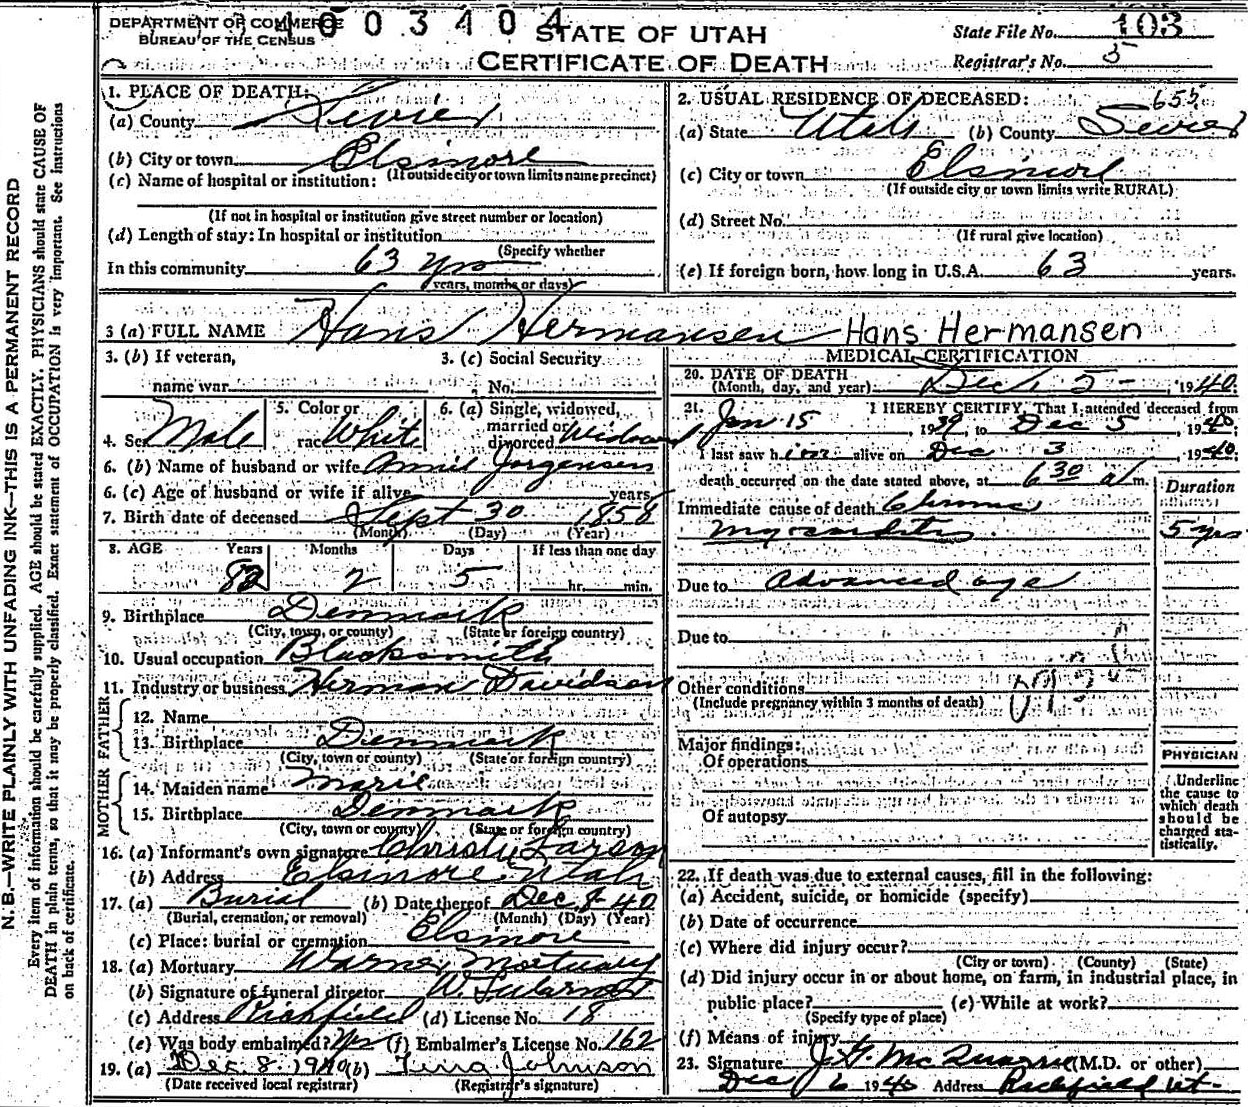 DEPARTMENT OF COMMERCE
BUREAU OF THE CENSUS
4003404
STATE OF UTAH
CERTIFICATE OF DEATH
State File No. 103
Registrar's No. 5
N.B.—WRITE PLAINLY WITH UNFADING INK—THIS IS A PERMANENT RECORD
Every item of information should be carefully supplied. AGE should be stated EXACTLY. PHYSICIANS should state CAUSE OF
DEATH in plain terms, so that it may be properly classified. Exact statement of OCCUPATION is very important. See instructions
on back of certificate.
1. PLACE OF DEATH:
(a) County Sevier
(b) City or town Elsinore
(If outside city or town limits name precinct)
(c) Name of hospital or institution:
(If not in hospital or institution give street number or location)
(d) Length of stay: In hospital or institution
(Specify whether
In this community 63 yrs
years, months or days)
2. USUAL RESIDENCE OF DECEASED: 655
(a) State Utah (b) County Sevier
(c) City or town Elsinore
(If outside city or town limits write RURAL)
(d) Street No.
(If rural give location)
(e) If foreign born, how long in U.S.A. 63 years.
3 (a) FULL NAME Hans Hermansen Hans Hermansen
3. (b) If veteran, 3. (c) Social Security
name war No.
4. Sex Male 5. Color or race White 6. (a) Single, widowed, married or divorced Widowed
6. (b) Name of husband or wife Annie Jorgensen
6. (c) Age of husband or wife if alive years
7. Birth date of deceased Sept 30 1858
(Month) (Day) (Year)
8. AGE Years Months Days If less than one day
82 2 5 hr. min.
9. Birthplace Denmark
(City, town, or county) (State or foreign country)
10. Usual occupation Blacksmith
11. Industry or business Herman Davidson
FATHER
12. Name
13. Birthplace Denmark
(City, town or county) (State or foreign country)
MOTHER
14. Maiden name Marie
15. Birthplace Denmark
(City, town or county) (State or foreign country)
16. (a) Informant's own signature Christy Larson
(b) Address Elsinore Utah
17. (a) Burial (b) Date thereof Dec 8 40
(Burial, cremation, or removal) (Month) (Day) (Year)
(c) Place: burial or cremation Elsinore
18. (a) Mortuary Warner Mortuary
(b) Signature of funeral director W.
(c) Address Richfield (d) License No. 18
(e) Was body embalmed? Yes (f) Embalmer's License No. 162
19. (a) Dec. 8, 1940 (b) Tena Johnson
(Date received local registrar) (Registrar's signature)
MEDICAL CERTIFICATION
20. DATE OF DEATH
(Month, day, and year) Dec 5 - , 1940.
21. I HEREBY CERTIFY, That I attended deceased from
Jan 15 1939, to Dec 5, 1940
I last saw him alive on Dec 3, 1940.
death occurred on the date stated above, at 6 30 a/m.
Duration
Immediate cause of death Chronic
myocarditis. 5 yrs
Due to Advanced age
Due to
Other conditions
(Include pregnancy within 3 months of death)
Major findings:
Of operations
Of autopsy
PHYSICIAN
Underline
the cause to
which death
should be
charged sta-
tistically.
22. If death was due to external causes, fill in the following:
(a) Accident, suicide, or homicide (specify)
(b) Date of occurrence
(c) Where did injury occur?
(City or town) (County) (State)
(d) Did injury occur in or about home, on farm, in industrial place, in
public place? (e) While at work?
(Specify type of place)
(f) Means of injury
23. Signature J. G. McQuarrie (M.D. or other)
Dec 6 1940 Address Richfield Ut-